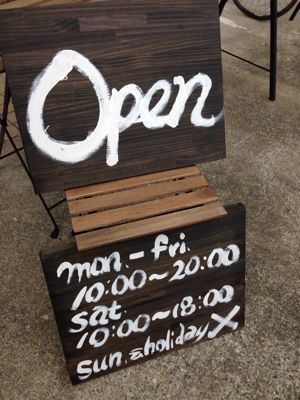 Open
mon-fri.
10:00~20:00
sat.
10:00~18:00
sun.&holiday X